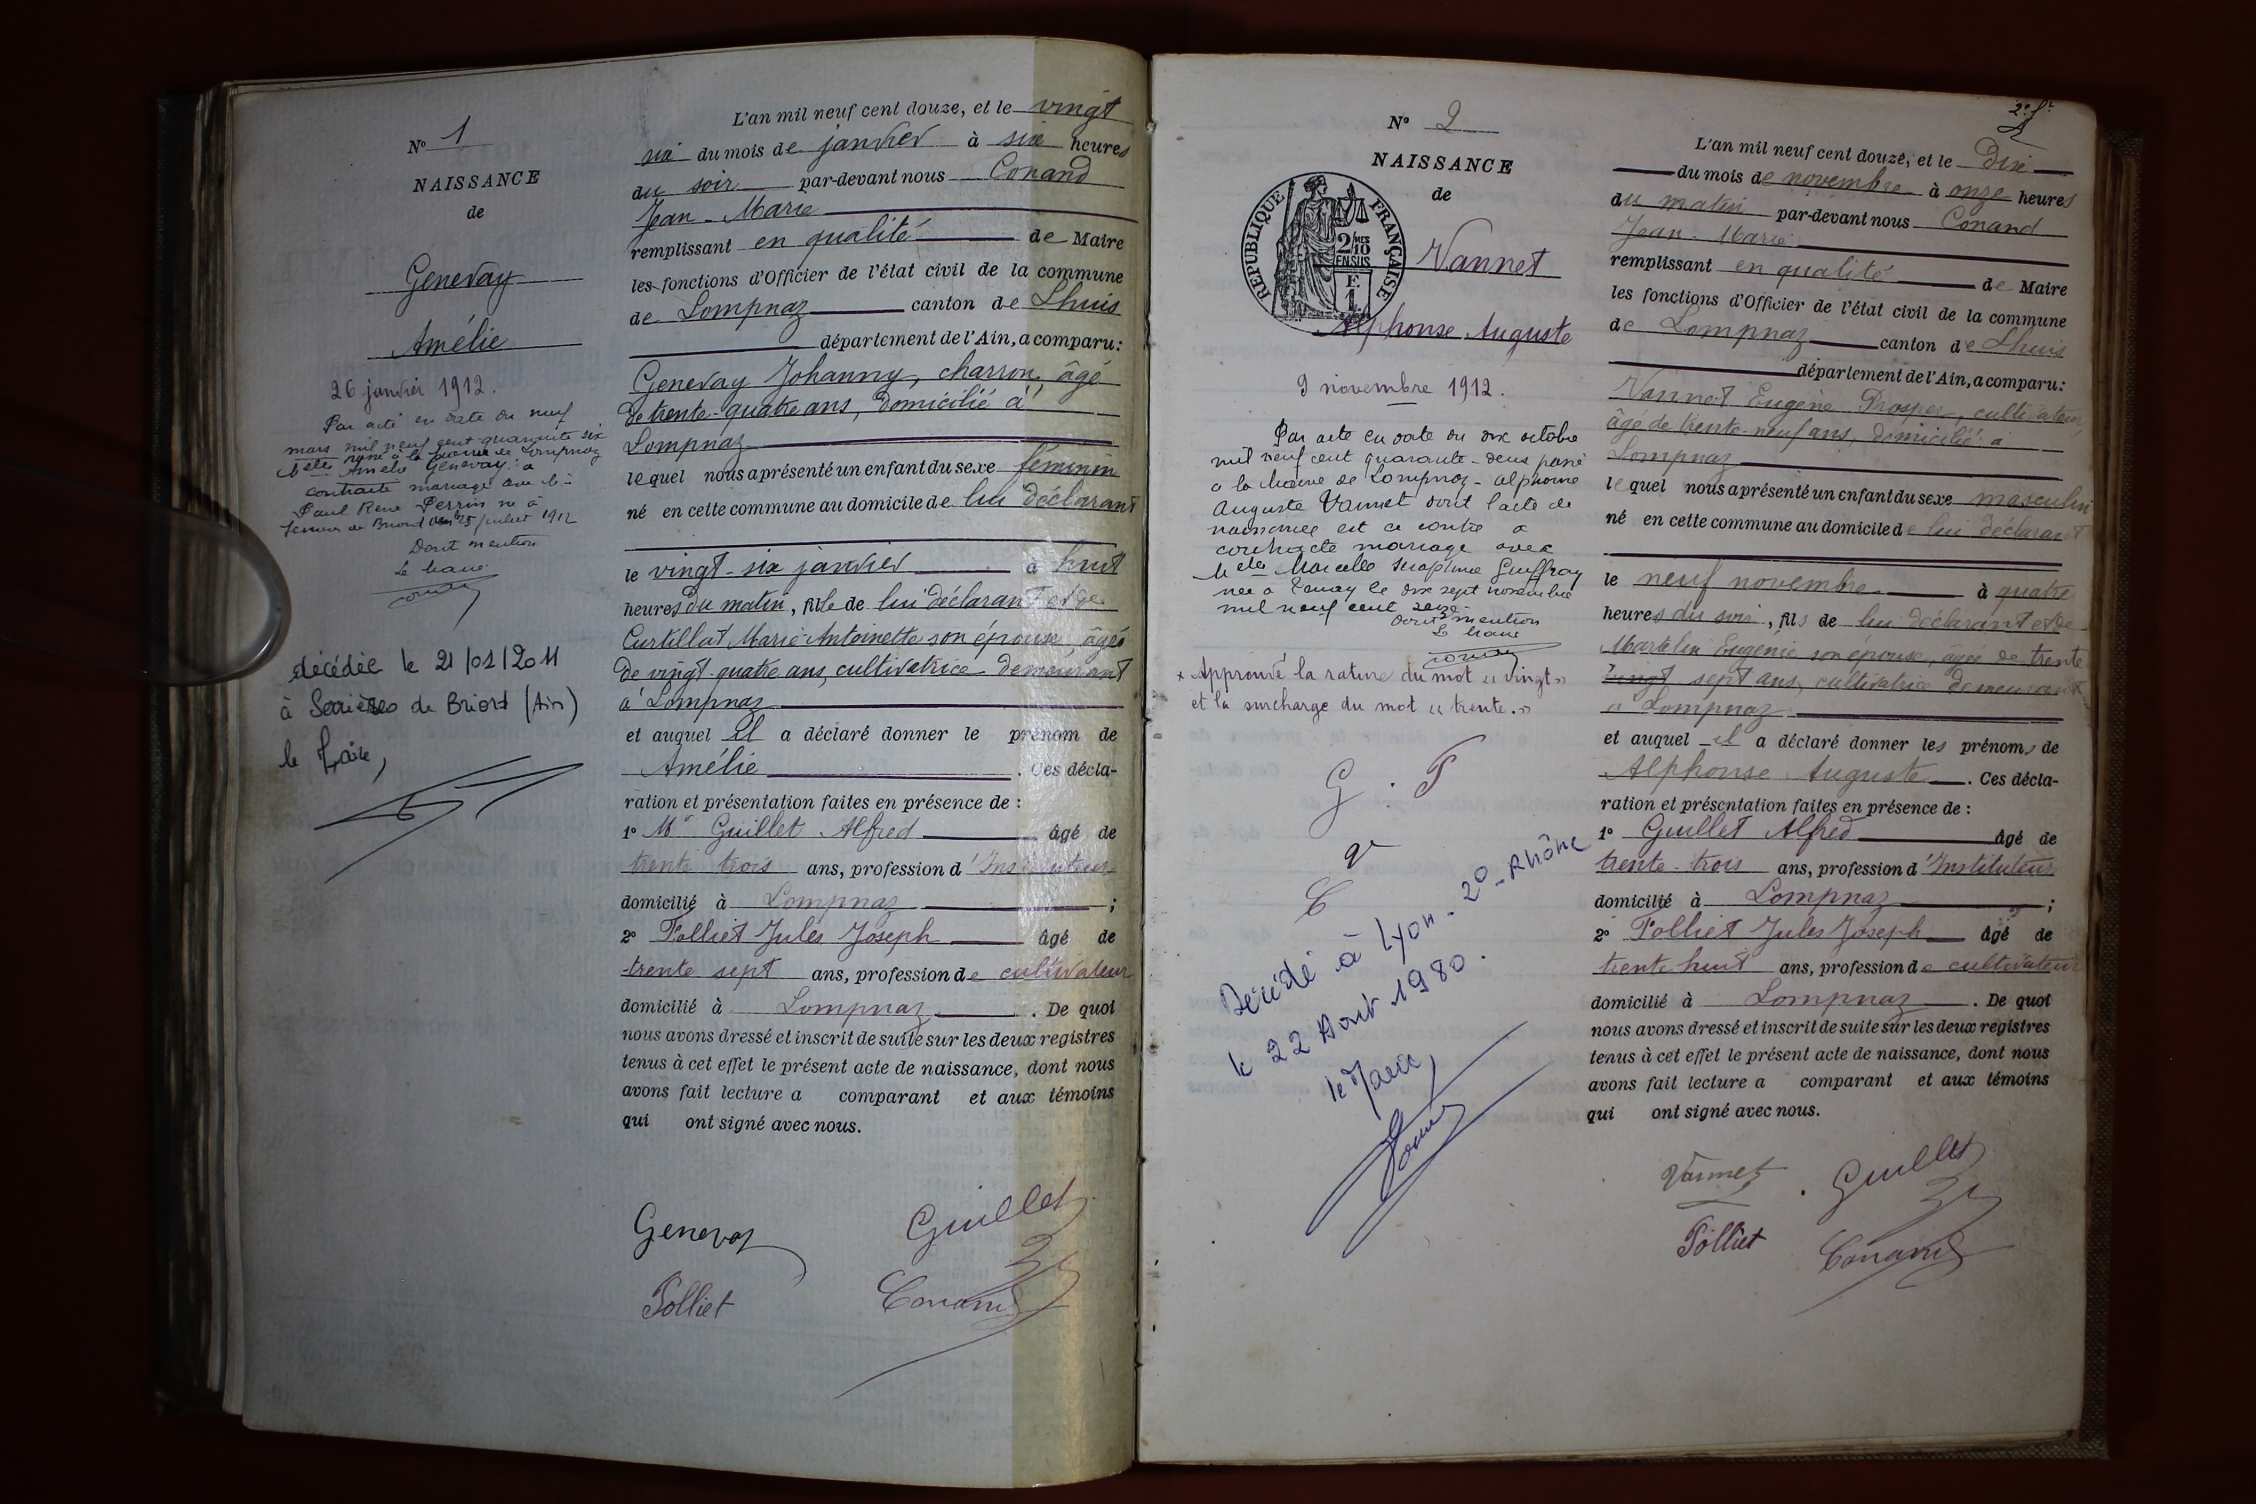 N° 1
NAISSANCE
de
Genevay
Amélie
26 janvier 1912.
Par acte en date du neuf
mars mil neuf cent quarante six
passé à la mairie de Lompnaz
Melle Amélie Genevay a
contracté mariage avec
Paul René Perrin né à
de Briord le 25 juillet 1912
Dont mention
Le Maire
décédée le 21/01/2011
à Serrières de Briord (Ain)
le Maire,
L'an mil neuf cent douze, et le vingt
six du mois de janvier à six heures
du soir par-devant nous Conand
Jean-Marie
remplissant en qualité de Maire
les fonctions d'Officier de l'état civil de la commune
de Lompnaz canton de Lhuis
département de l'Ain, a comparu:
Genevay Johanny, charron, âgé
de trente-quatre ans, domicilié à
Lompnaz
lequel nous a présenté un enfant du sexe féminin
né en cette commune au domicile de lui déclarant
le vingt-six janvier à huit
heures du matin, fille de lui déclarant et de
Curtillat Marie Antoinette son épouse âgée
de vingt-quatre ans, cultivatrice demeurant
à Lompnaz
et auquel il a déclaré donner le prénom de
Amélie. Ces décla-
ration et présentation faites en présence de :
1° Mr Guillet Alfred âgé de
trente trois ans, profession d'Instituteur
domicilié à Lompnaz ;
2° Polliet Jules Joseph âgé de
trente sept ans, profession de cultivateur
domicilié à Lompnaz. De quoi
nous avons dressé et inscrit de suite sur les deux registres
tenus à cet effet le présent acte de naissance, dont nous
avons fait lecture a comparant et aux témoins
qui ont signé avec nous.
Genevay Guillet
Polliet Conand
2e ft
N° 2
NAISSANCE
de
REPUBLIQUE FRANÇAISE
2/10 MES
EN SUS
Vannet
Alphonse Auguste
9 novembre 1912.
Par acte en date du dix octobre
mil neuf cent quarante-deux passé
a la Mairie de Lompnaz - Alphonse
Auguste Vannet dont l'acte de
naissance est ci contre a
contracté mariage avec
Melle Marcelle Guffroy
née à Tenay le dix sept novembre
mil neuf cent seize
Dont mention
Le Maire
x Approuvé la rature du mot « vingt »
et la surcharge du mot « trente. »
G. P
Décédé à Lyon - 2° - Rhône
le 22 Août 1980.
le Maire,
L'an mil neuf cent douze, et le Dix
du mois de novembre à onze heures
du matin par-devant nous Conand
Jean-Marie
remplissant en qualité de Maire
les fonctions d'Officier de l'état civil de la commune
de Lompnaz canton de Lhuis
département de l'Ain, a comparu:
Vannet Eugène Prosper, cultivateur
âgé de trente-neuf ans, domicilié à
Lompnaz
lequel nous a présenté un enfant du sexe masculin
né en cette commune au domicile de lui déclarant
le neuf novembre à quatre
heures du soir, fils de lui déclarant et de
Martelin Eugénie son épouse, âgée de trente
vingt sept ans, cultivatrice demeurant
à Lompnaz
et auquel il a déclaré donner les prénoms de
Alphonse Auguste. Ces décla-
ration et présentation faites en présence de :
1° Guillet Alfred âgé de
trente-trois ans, profession d'Instituteur
domicilié à Lompnaz ;
2° Polliet Jules Joseph âgé de
trente huit ans, profession de cultivateur
domicilié à Lompnaz. De quoi
nous avons dressé et inscrit de suite sur les deux registres
tenus à cet effet le présent acte de naissance, dont nous
avons fait lecture a comparant et aux témoins
qui ont signé avec nous.
Vannet Guillet
Polliet Conand